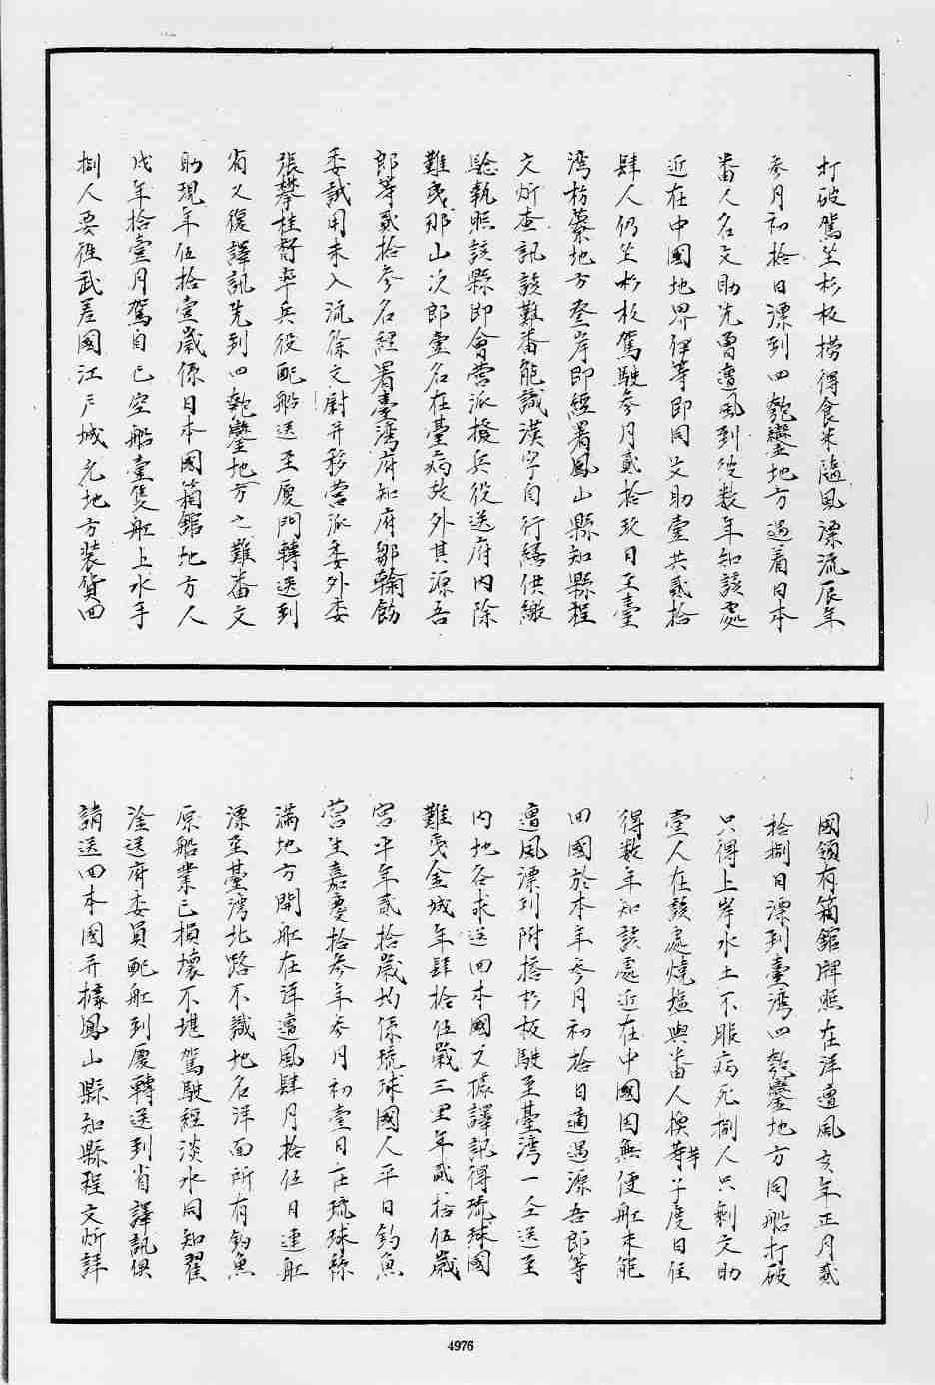 打破駕坐杉板撈得食米隨風漂流辰年
叁月初拾日漂到四匏鑾地方遇着日本
番人名文助先曾遭風到彼数年知該處
近在中國地界伊等即同文助壹共貳拾
肆人仍坐杉板駕駛叁月貳拾玖日至臺
湾枋藔地方登岸即經署鳳山縣知縣程
文炘查訊該難番能識漢字自行繕供繳
騐執照該縣即會营派撥兵役送府内除
難夷那山次郎壹名在臺病故外其源吾
郎等貳拾叁名經署臺湾府知府鄒翰飭
委試用未入流徐之尉并移营派委外委
張攀桂督率兵役配船送至厦門轉送到
省又復譯訊先到四匏鑾地方之難番文
助現年伍拾壹歲係日本國箱舘地方人
戌年拾壹月駕自己空船壹隻舡上水手
捌人要徃武差國江戸城元地方装貨四
國領有箱舘牌照在洋遭風亥年正月貳
拾捌日漂到臺湾四匏鑾地方同船打破
只得上岸水土不服病死捌人只剩文助
壹人在該處燒塩與番人換芋芋子度日住
得数年知該處近在中國因無便舡未能
囬國於本年叁月初拾日適遇源吾郎等
遭風漂到附搭杉板駛至臺湾一仝送至
内地咨求送囬本國又據譯訊得琉球國
難夷金城年肆拾伍歲三里年貳拾伍歲
宫平年貳拾歲均係琉球國人平日釣魚
营生嘉慶拾叁年叁月初壹日在琉球綠
滿地方開舡在洋遭風肆月拾伍日連舡
漂至臺湾北路不識地名洋面所有釣魚
原船業已損壞不堪駕駛經淡水同知翟
淦送府委員配舡到厦轉送到省譯訊俱
請送囬本國并據鳳山縣知縣程文炘詳
4976